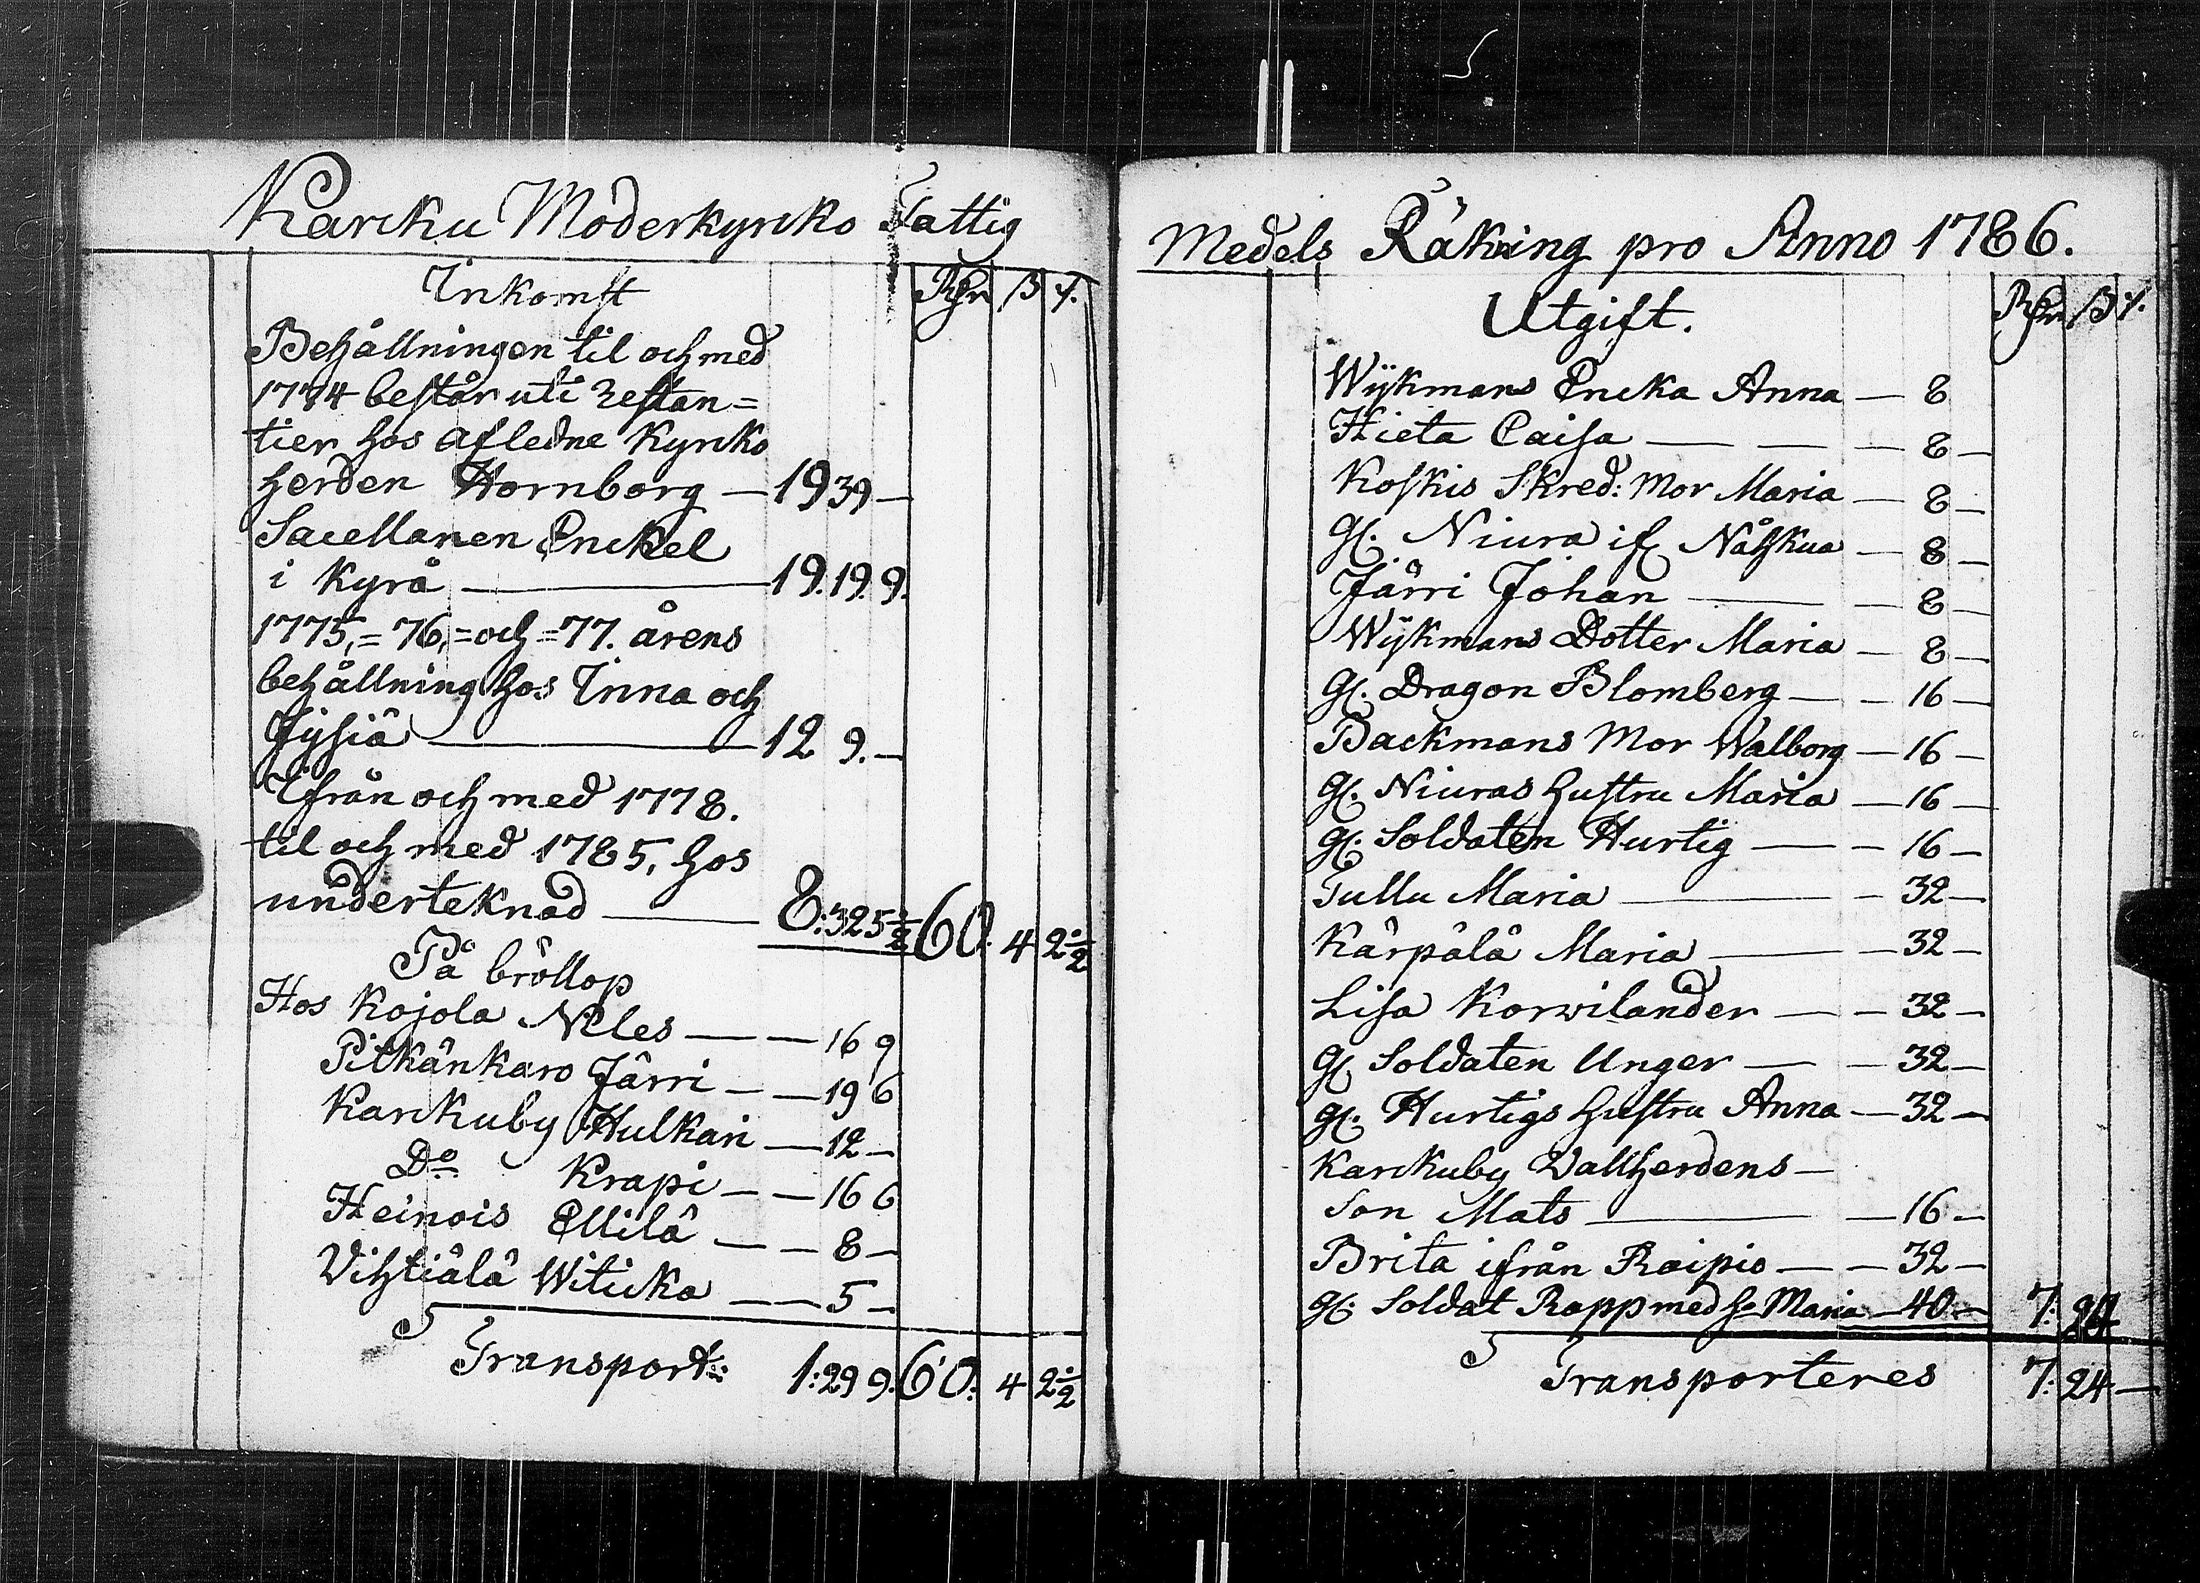 Karcku Moderkyrcko Fattig
Inkomst Rdr ß
Behållningen til och med
1774 består uti restan=
tier hos afledne Kyrcko
herden Hornborg — 19 39 —
Sacellanen Enckel
i Kyrå — 19. 19. 9.
1775,=76,=och=77. årens
behållning hos Inna och
Jysiä — 12 9. —
Ifrån och med 1778.
til och med 1785, hos
underteknad — 8: 32 5 ½ 60. 4 2 ½
På bröllop
Hos Kojola Neles — — 16 9
Pitkänkaro Järri — — 19 6
Karckuby Hulkari — 12 —
Do Krapi — — 16 6
Heinois Ellilä — — 8 —
Vihtiälä Witicka — 5 —
Transport: 1: 29 9. 60: 4 2 ½
Medels Räkning pro Anno 1786.
Utgift. Rdr ß
Wykmans Encka Anna — 8
Hieta Caisa — — — 8 —
Koskis Skred: Mor Maria — 8 —
Gl. Niura if Nåhkua — 8 —
Järri Johan — — 8 —
Wykmans Dotter Maria — 8 —
Gl. Dragon Blomberg — — 16 —
Backmans Mor Walborg — 16 —
Gl. Niuras hustru Maria — 16 —
Gl. Soldaten Hurtig — — 16 —
Tullu Maria — — 32 —
Kärpälä Maria — — 32 —
Lisa Korwilander — — 32 —
Gl. Soldaten Unger — — 32 —
Gl. Hurtigs hustru Anna — 32 —
Karckuby Vallherdens —
Son Mats — — 16 —
Brita ifrån Raipio — — 32 —
Gl. Soldat Rapp med h. Maria — 40 — 7: 24
Transporteres 7: 24 —